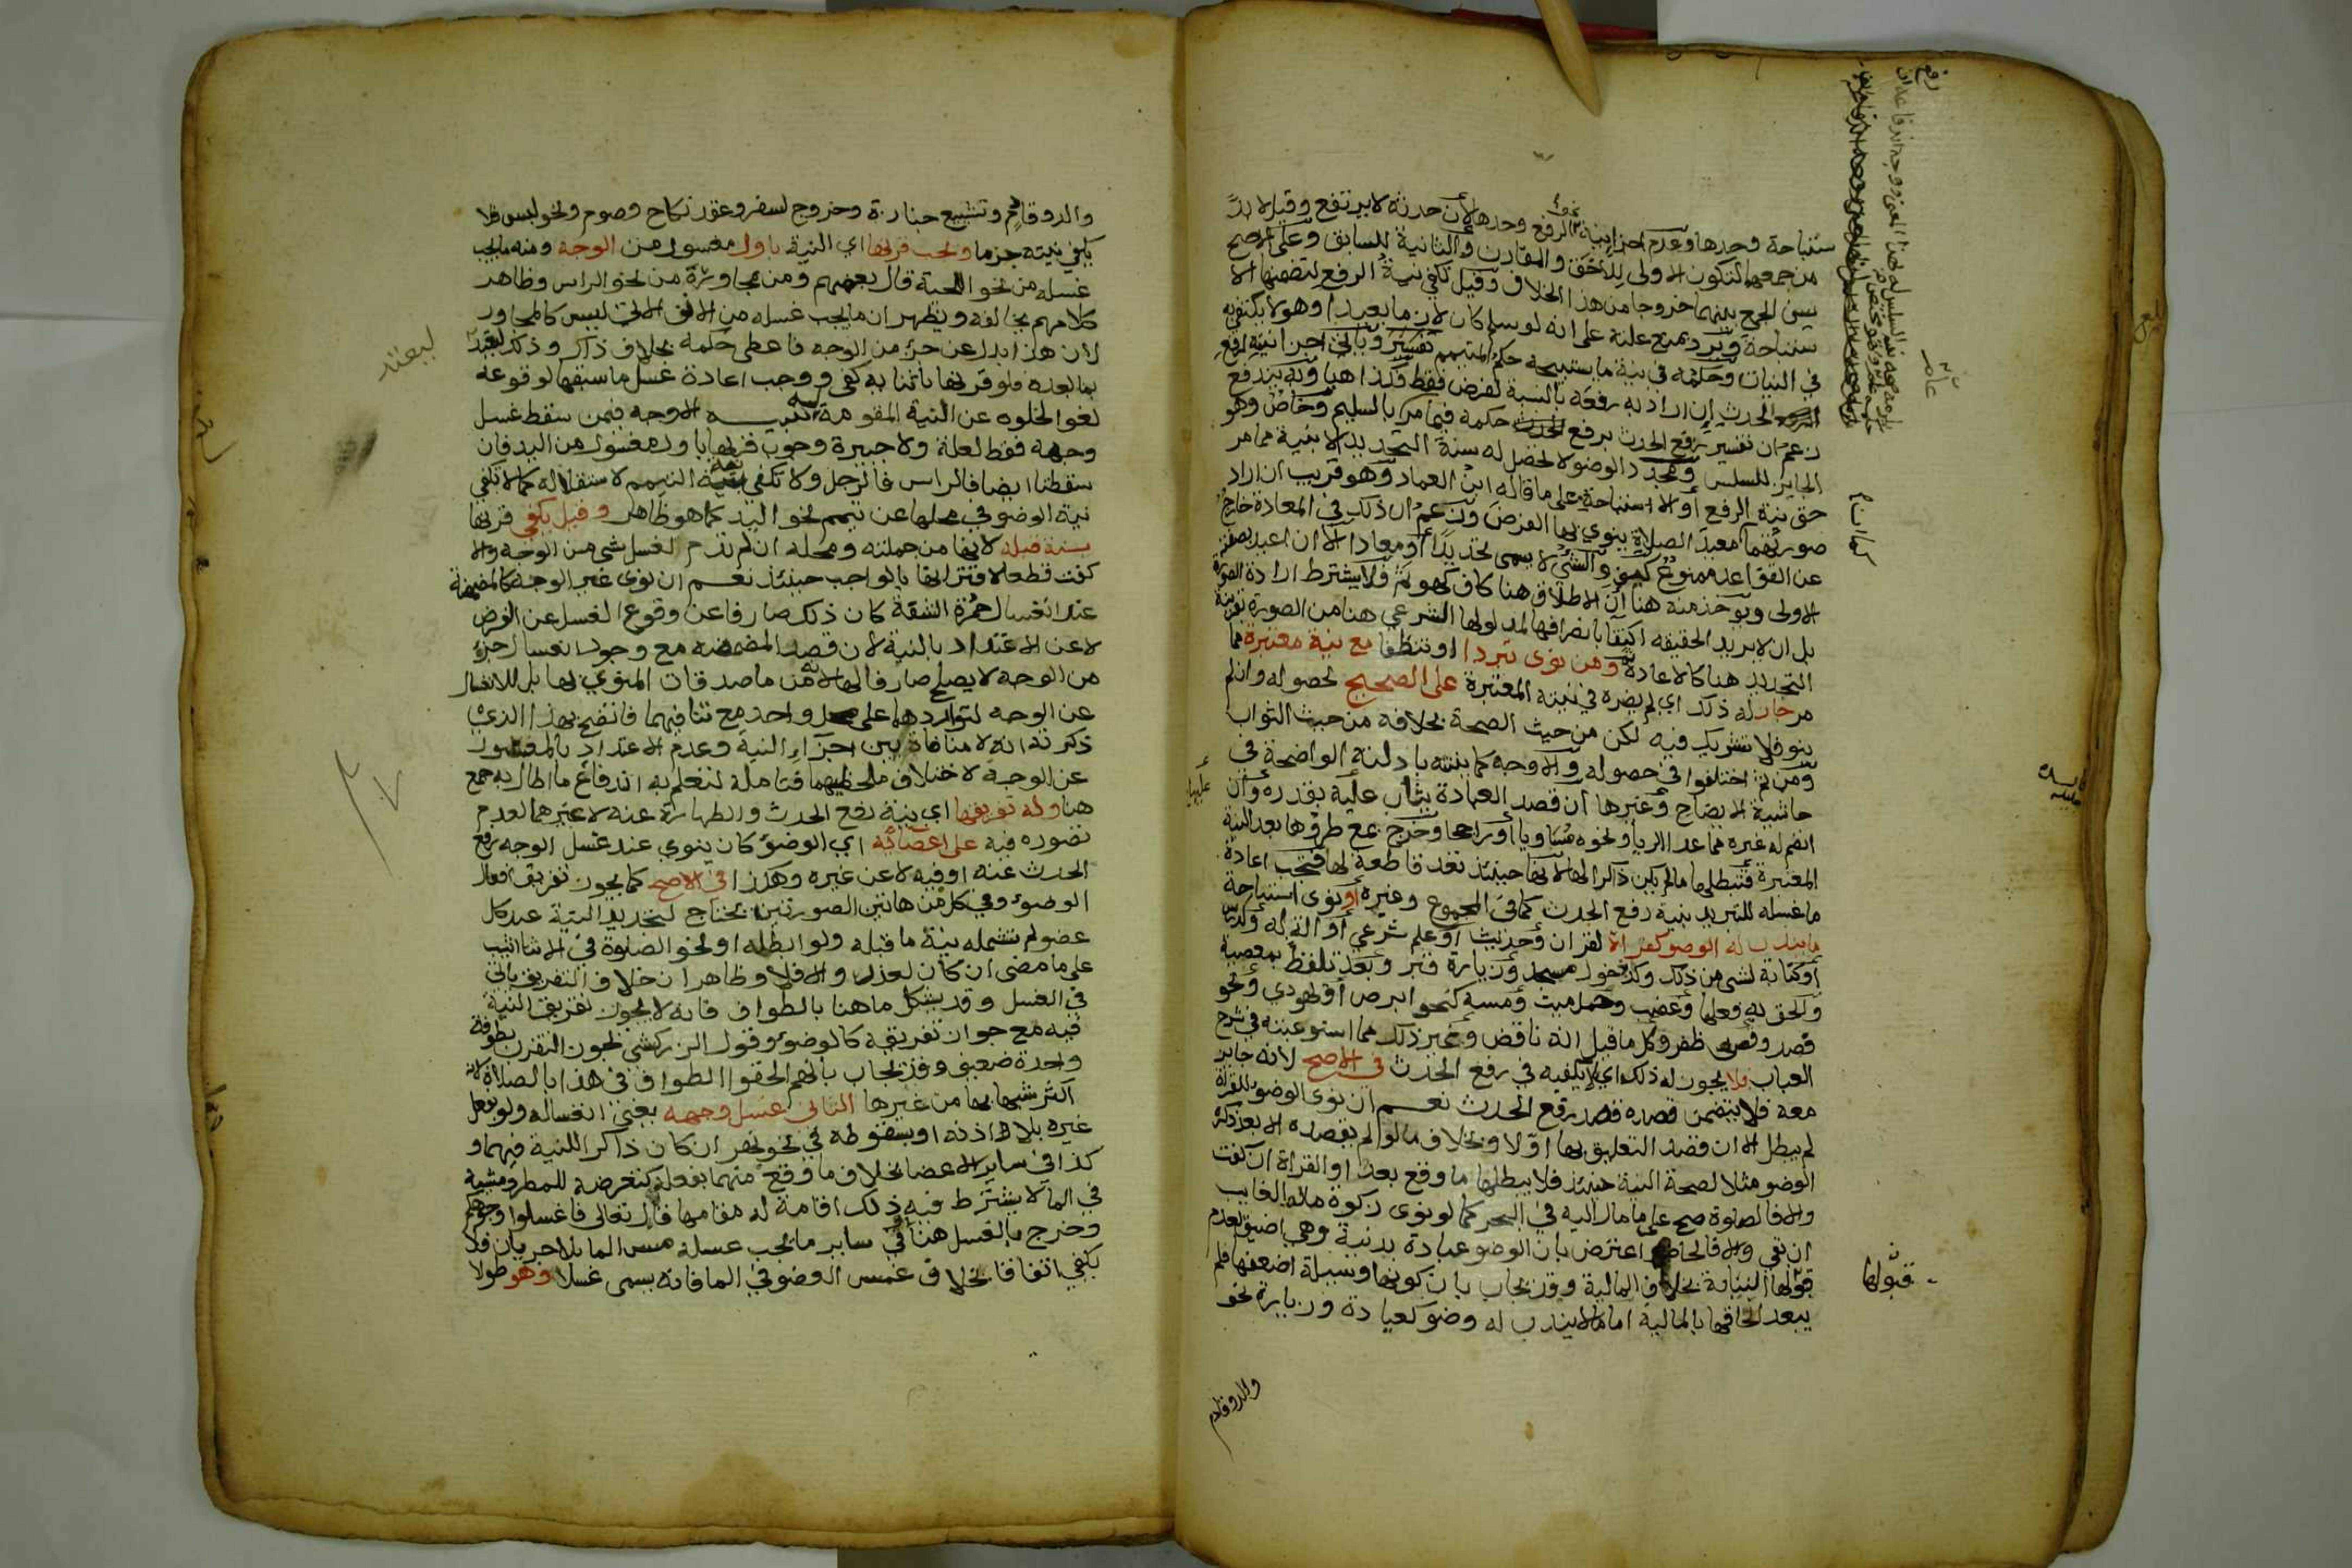 ستباحة وحدها وعدم اجزا نية الرفع وحدها لأن حدثه لا يرتفع وقيل لا بد
من جمعهما لتكون الاولى للاحق والمقارن والثانية للسابق وعلى الاصح
يسن الجمع بينهما خروجا من هذا الخلاف وقيل تكفي نية الرفع لتضمنها الا
ستباحة ويرد بمنع علته على انه لو سلم كان لازما بعيدا وهو لا يكتفي به
في النيات وحكمه في نية ما يستبيحه حكم المتيمم وياتي اجزا نية لرفع
الحدث ان اراد به رفعه بالنسبة لفرض فقط وكذا هنا وبه يندفع
زعم ان تفسير رفع الحدث برفع حكمه فيما مر بالسليم وخاص وهو
الجايز للسلس ومجدد الوضو لا تحصل له سنة التجديد الا بنية مما مر
حق نية الرفع أو الاستباحة على ما قاله ابن العماد وهو قريب ان اراد
صورتهما معيد الصلاة ينوي بها الفرض وزعم ان ذلك في المعادة خارج
عن القواعد ممنوع كيف والشي لا يسمى تجديدا أو معادا الا ان اعيد بصفته
الاولى ويوخذ منه هنا ان الاطلاق هنا كاف كهو ثم فلا يشترط ارادة الصورة
بل ان لا يريد الحقيقه اكتفا بانصرافها لمدلولها الشرعي هنا من الصورة بقرينة
التجديد هنا كالاعادة ثم ومن نوى تبردا او تنظفا مع نية معتبرة مما
مر جاز له ذلك اي لم يضره في نيته المعتبرة على الصحيح لحصوله وان لم
ينو فلا تشريك فيه لكن من حيث الصحة بخلافه من حيث الثواب
ومن ثم اختلفوا في حصوله والاوجه كما بينته بادلته الواضحة في
حاشية الايضاح وغيرها ان قصد العبادة يثاب عليه بقدره وان
انضم له غيره مما عدا الريا ونحوه مساويا او راجحا وخرج بمع طروها بعد النية
المعتبرة فتبطلها ما لم يكن ذاكرا لها لانها حينئذ تعد قاطعة لها فتجب اعادة
ما غسله للتبريد بنية رفع الحدث كما في المجموع وغيره أو نوى استباحة
ما يندب له الوضو كقراة لقران وحديث او علم شرعي او الة له ودرس
أو كتابة لشي من ذلك وكدخول مسجد وزيارة قبر وبعد تلفظ بمعصية
والحق به فعلها وغضب وحمل ميت ومسه كنحو ابرص أو يهودي ونحو
فصد وقص ظفر وكل ما قيل انه ناقض وغير ذلك مما استوعبته في شرح
العباب فلا يجوز له ذلك اي لا يكفيه في رفع الحدث في الاصح لانه جايز
معه فلا يتضمن قصده قصد رفع الحدث نعم ان نوى الوضو للقراة
لم يبطل الا ان قصد التعليق بها اولا وبخلاف ما لو لم يقصده الا بعد ذكره
الوضو مثلا لصحة النية حينئذ فلا يبطلها ما وقع بعد او القراة ان كفت
والا فالصلوة صح على ما مال اليه في البحر كما لو نوى زكوة ماله الغايب
ان بقي والا فالحاضر اعترض بان الوضو عبادة بدنية وهي اضيق لعدم
قبولها النيابة بخلاف المالية وقد يجاب بان كونها وسيلة اضعفها فلم
يبعد الحاقها بالمالية اما ما لا يندب له وضو كعيادة وزيارة نحو
والد وقادم
قبولها
والد وقادم وتشييع جنازة وخروج لسفر وعقد نكاح وصوم ونحو لبس فلا
يكفي نيته جزما ويجب قرنها اي النية باول مغسول من الوجه ومنه ما يجب
غسله من نحو اللحية قال بعضهم ومن مجاوزة من نحو الراس وظاهر
كلامهم يخالفه ويظهر ان ما يجب غسله من الانف الاتي ليس كالمجاور
لان هذا بدل عن جزء من الوجه فاعطى حكمه بخلاف ذاك وذلك ليعتد
بما بعده فلو قرنها باثنا به كفى ووجب اعادة غسل ما سبقها لوقوعه
لغوا لخلوه عن النية المقومة له الاوجه فيمن سقط غسل
وجهه فقط لعلة ولا جبيرة وجوب قرنها باول مغسول من اليد فان
سقطتا ايضا فالراس فالرجل ولا تكفي نية التيمم لاستقلاله كما لا تكفي
نية الوضو في محلها عن تيمم نحو اليد كما هو ظاهر وقيل يكفي قرنها
بسنة قبله لانها من جملته ومحله ان لم تدم لغسل شي من الوجه والا
كفت قطعا لاقترانها بالواجب حينئذ نعم ان نوى غير الوجه كالمضمضة
عند انغسال حمرة الشفة كان ذلك صارفا عن وقوع الغسل عن الفرض
لا عن الاعتداد بالنية لان قصد المضمضه مع وجود انغسال جزء
من الوجه لا يصلح صارفا لها لانه من ماصدقات المنوي بها بل للانغسال
عن الوجه لتواردهما على محل واحد مع تنافيهما فاتضح بهذا الذي
ذكرته انه لا منافاة بين اجزاء النية وعدم الاعتداد بالمغسول
عن الوجه لاختلاف ملحظيهما فتامله لتعلم به اندفاع ما اطال به جمع
هنا وله تفريقها اي نية رفع الحدث والطهارة عنه لا غيرهما لعدم
تصوره فيه على اعضائه اي الوضوء كان ينوي عند غسل الوجه رفع
الحدث عنه او فيه لا عن غيره وهكذا في الاصح كما يجوز تفريق افعال
الوضوء وفي كل من هاتين الصورتين يحتاج لتجديد النية عند كل
عضو لم تشمله نية ما قبله ولو ابطله او نحو الصلوة في الاثنا اثيب
على ما مضى ان كان لعذر والا فلا وظاهر ان خلاف التفريق ياتي
في الغسل وقد يشكل ما هنا بالطواف فانه لا يجوز تفريق النية
فيه مع جواز تفريقه كالوضوء وقول الزركشي يجوز التقرب بطوفة
واحدة ضعيف وقد يجاب بانهم الحقوا الطواف في هذا بالصلاة لانه
اكثر شبها بها من غيرها الثاني غسل وجهه يعني انغساله ولو بفعل
غيره بلا اذنه او بسقوطه في نحو نهر ان كان ذاكرا للنية فيهما و
كذا في ساير الاعضا بخلاف ما وقع منهما بفعله كتعرضه للمطر ومشيه
في الما لا يشترط فيه ذلك اقامة له مقامها قال تعالى فاغسلوا وجوهكم
وخرج بالغسل هنا في ساير ما يجب غسله مس الما بلا جريان فلا
يكفي اتفاقا بخلاف غمس العضو في الما فانه يسمى غسلا وهو طولا
ليعتد